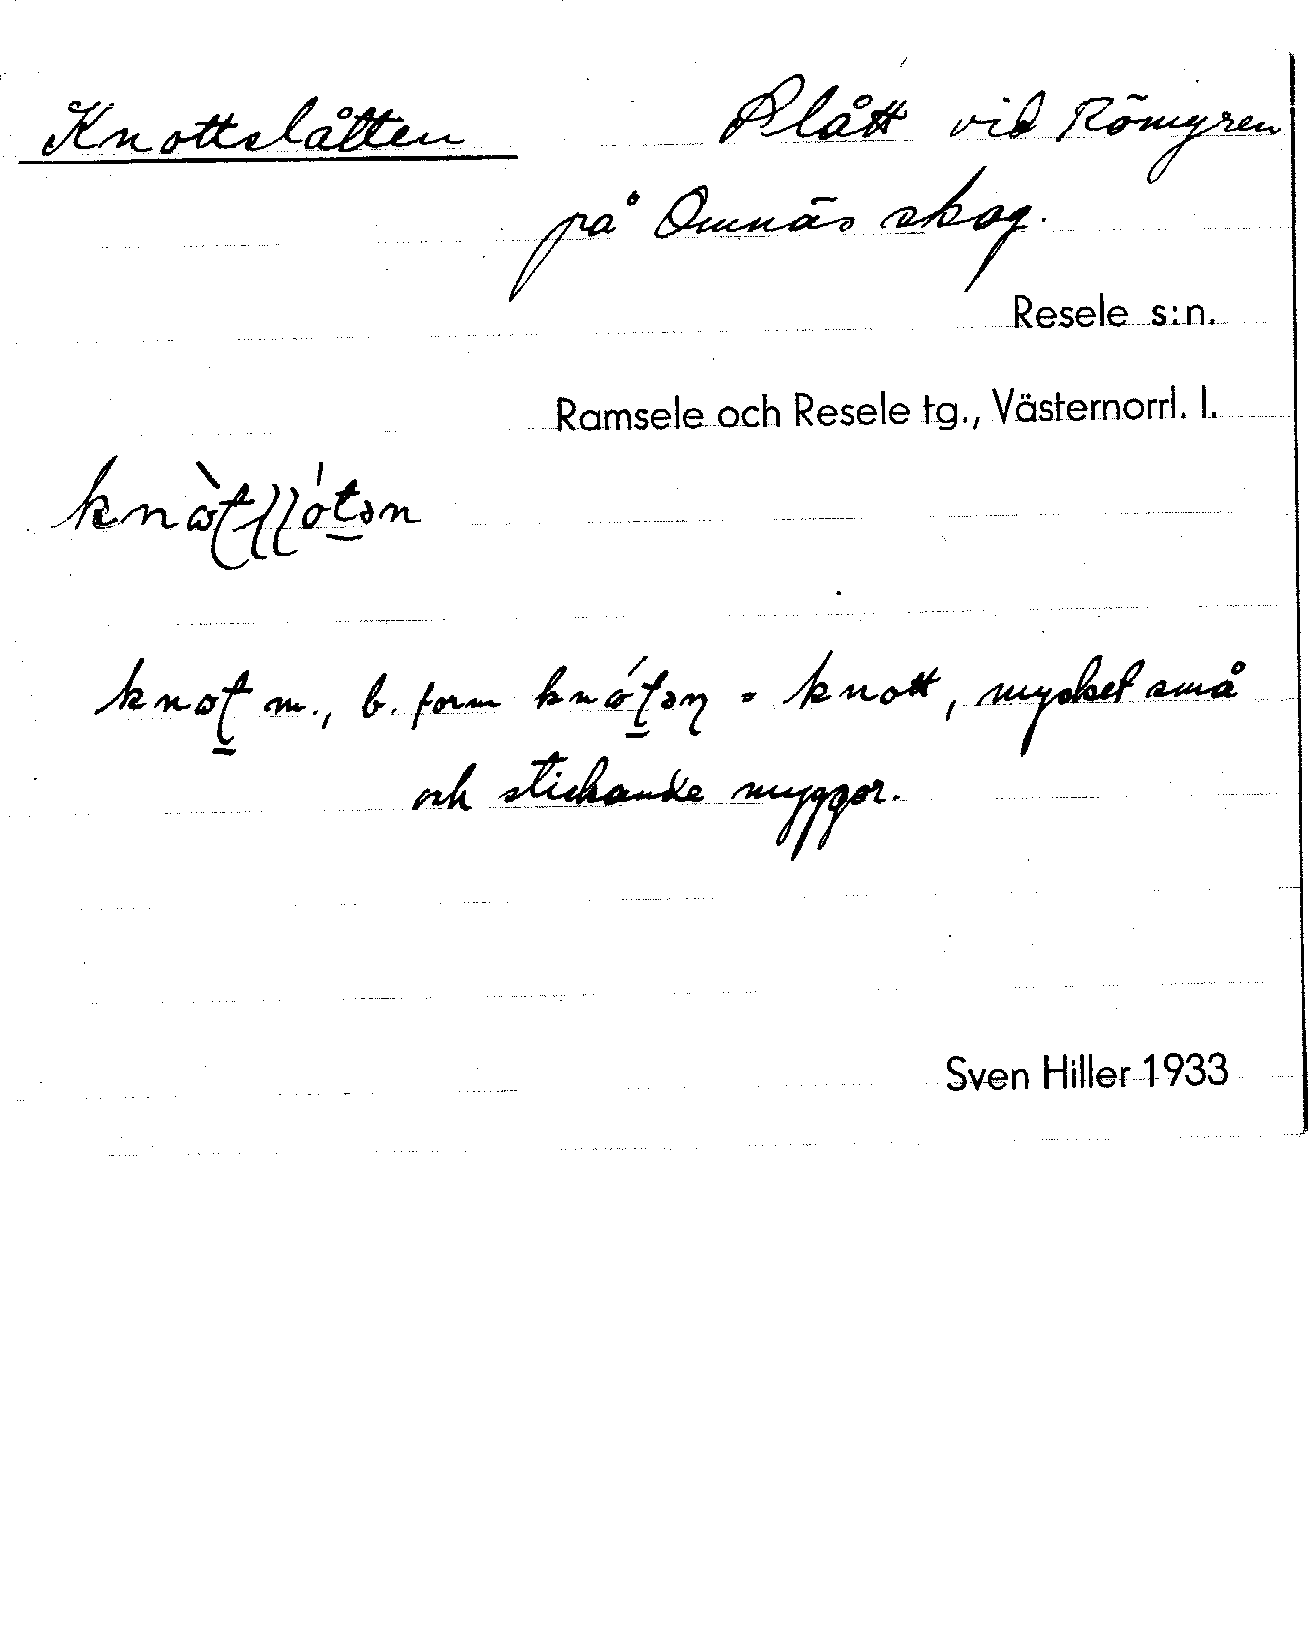 Knottslåtten Slått vid Römyren
på Omnäs skog.
Resele s:n.
Ramsele och Resele tg., Västernorrl. l.
m., b. form = knott, mycket små
och stickande myggor.
Sven Hiller 1933